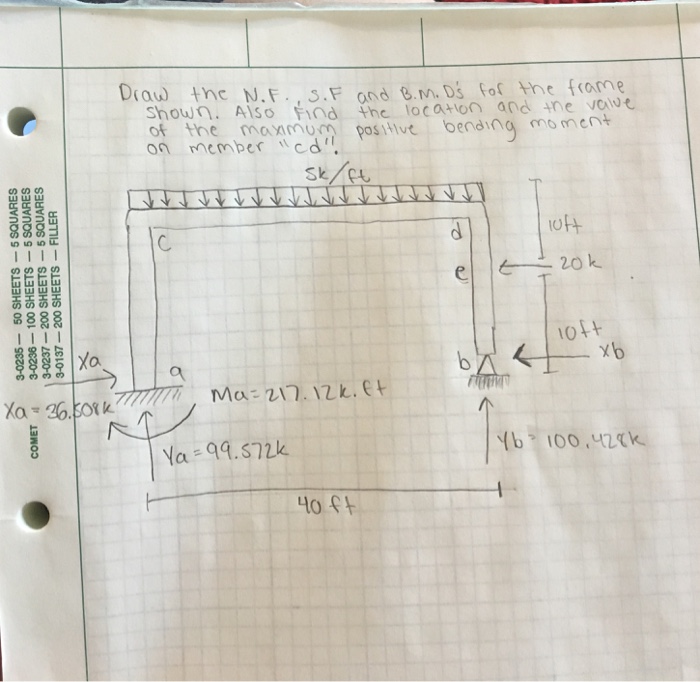 Draw the N.F., S.F and B.M.D's for the frame
shown. Also Find the location and the value
of the maxmum positive bending moment
on member "cd".
5k/ft
c
d
10ft
e
20k
10ft
Xa
a
b
xb
Xa = 36.508k
Ma=217.12k.ft
Ya=99.572k
Yb=100.428k
40ft
3-0235 — 50 SHEETS — 5 SQUARES
3-0236 — 100 SHEETS — 5 SQUARES
3-0237 — 200 SHEETS — 5 SQUARES
3-0137 — 200 SHEETS — FILLER
COMET